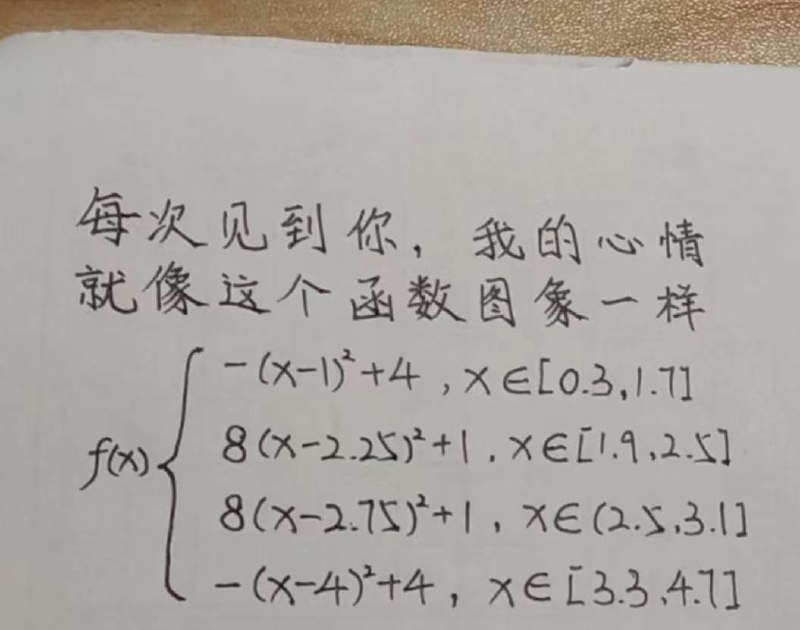 每次见到你，我的心情
就像这个函数图象一样
f(x) {
-(x-1)²+4 , x∈[0.3,1.7]
8(x-2.25)²+1 , x∈[1.9,2.5]
8(x-2.75)²+1 , x∈(2.5,3.1]
-(x-4)²+4 , x∈[3.3,4.7]